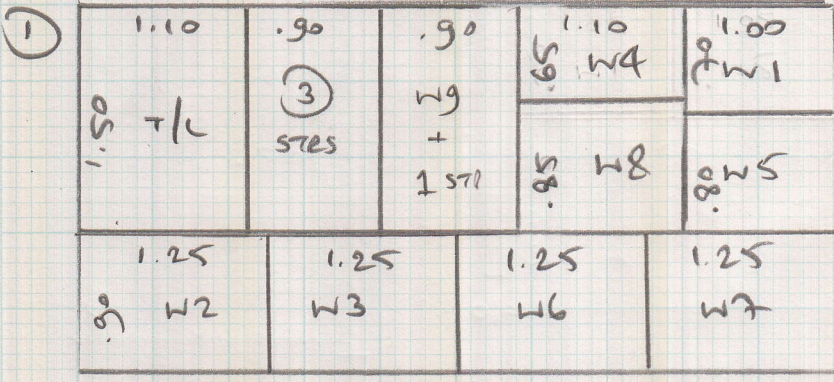 1
1.10
1.50
T/L
.90
3
STRS
.90
W9
+
1 STR
1.10
.65 W4
.85 W8
1.00
.70 W1
.80 W5
1.25
.90 W2
1.25
W3
1.25
W6
1.25
W7